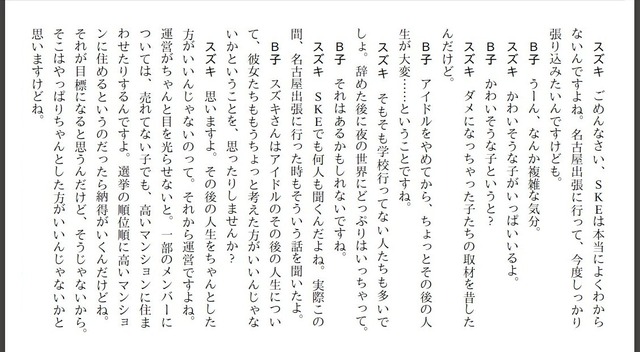 スズキ　ごめんなさい、SKEは本当によくわから
ないんですよね。名古屋出張に行って、今度しっかり
張り込みたいんですけども。
B子　うーん、なんか複雑な気分。
スズキ　かわいそうな子がいっぱいいるよ。
B子　かわいそうな子というと？
スズキ　ダメになっちゃった子たちの取材を昔した
んだけど。
B子　アイドルをやめてから、ちょっとその後の人
生が大変……ということですね。
スズキ　そもそも学校行ってない人たちも多いで
しょ。辞めた後に夜の世界にどっぷりはいっちゃって。
B子　それはあるかもしれないですね。
スズキ　SKEでも何人も聞くんだよね。実際この
間、名古屋出張に行った時もそういう話を聞いたよ。
B子　スズキさんはアイドルのその後の人生につい
て、彼女たちももうちょっと考えた方がいいんじゃな
いかということを、思ったりしませんか？
スズキ　思いますよ。その後の人生をちゃんとした
方がいいんじゃないのって。それから運営ですよね。
運営がちゃんと目を光らせないと。一部のメンバーに
ついては、売れてない子でも、高いマンションに住ま
わせたりするんですよ。選挙の順位順に高いマンショ
ンに住めるというのだったら納得がいくんだけどね。
それが目標になると思うんだけど、そうじゃないから。
そこはやっぱりちゃんとした方がいいんじゃないかと
思いますけどね。